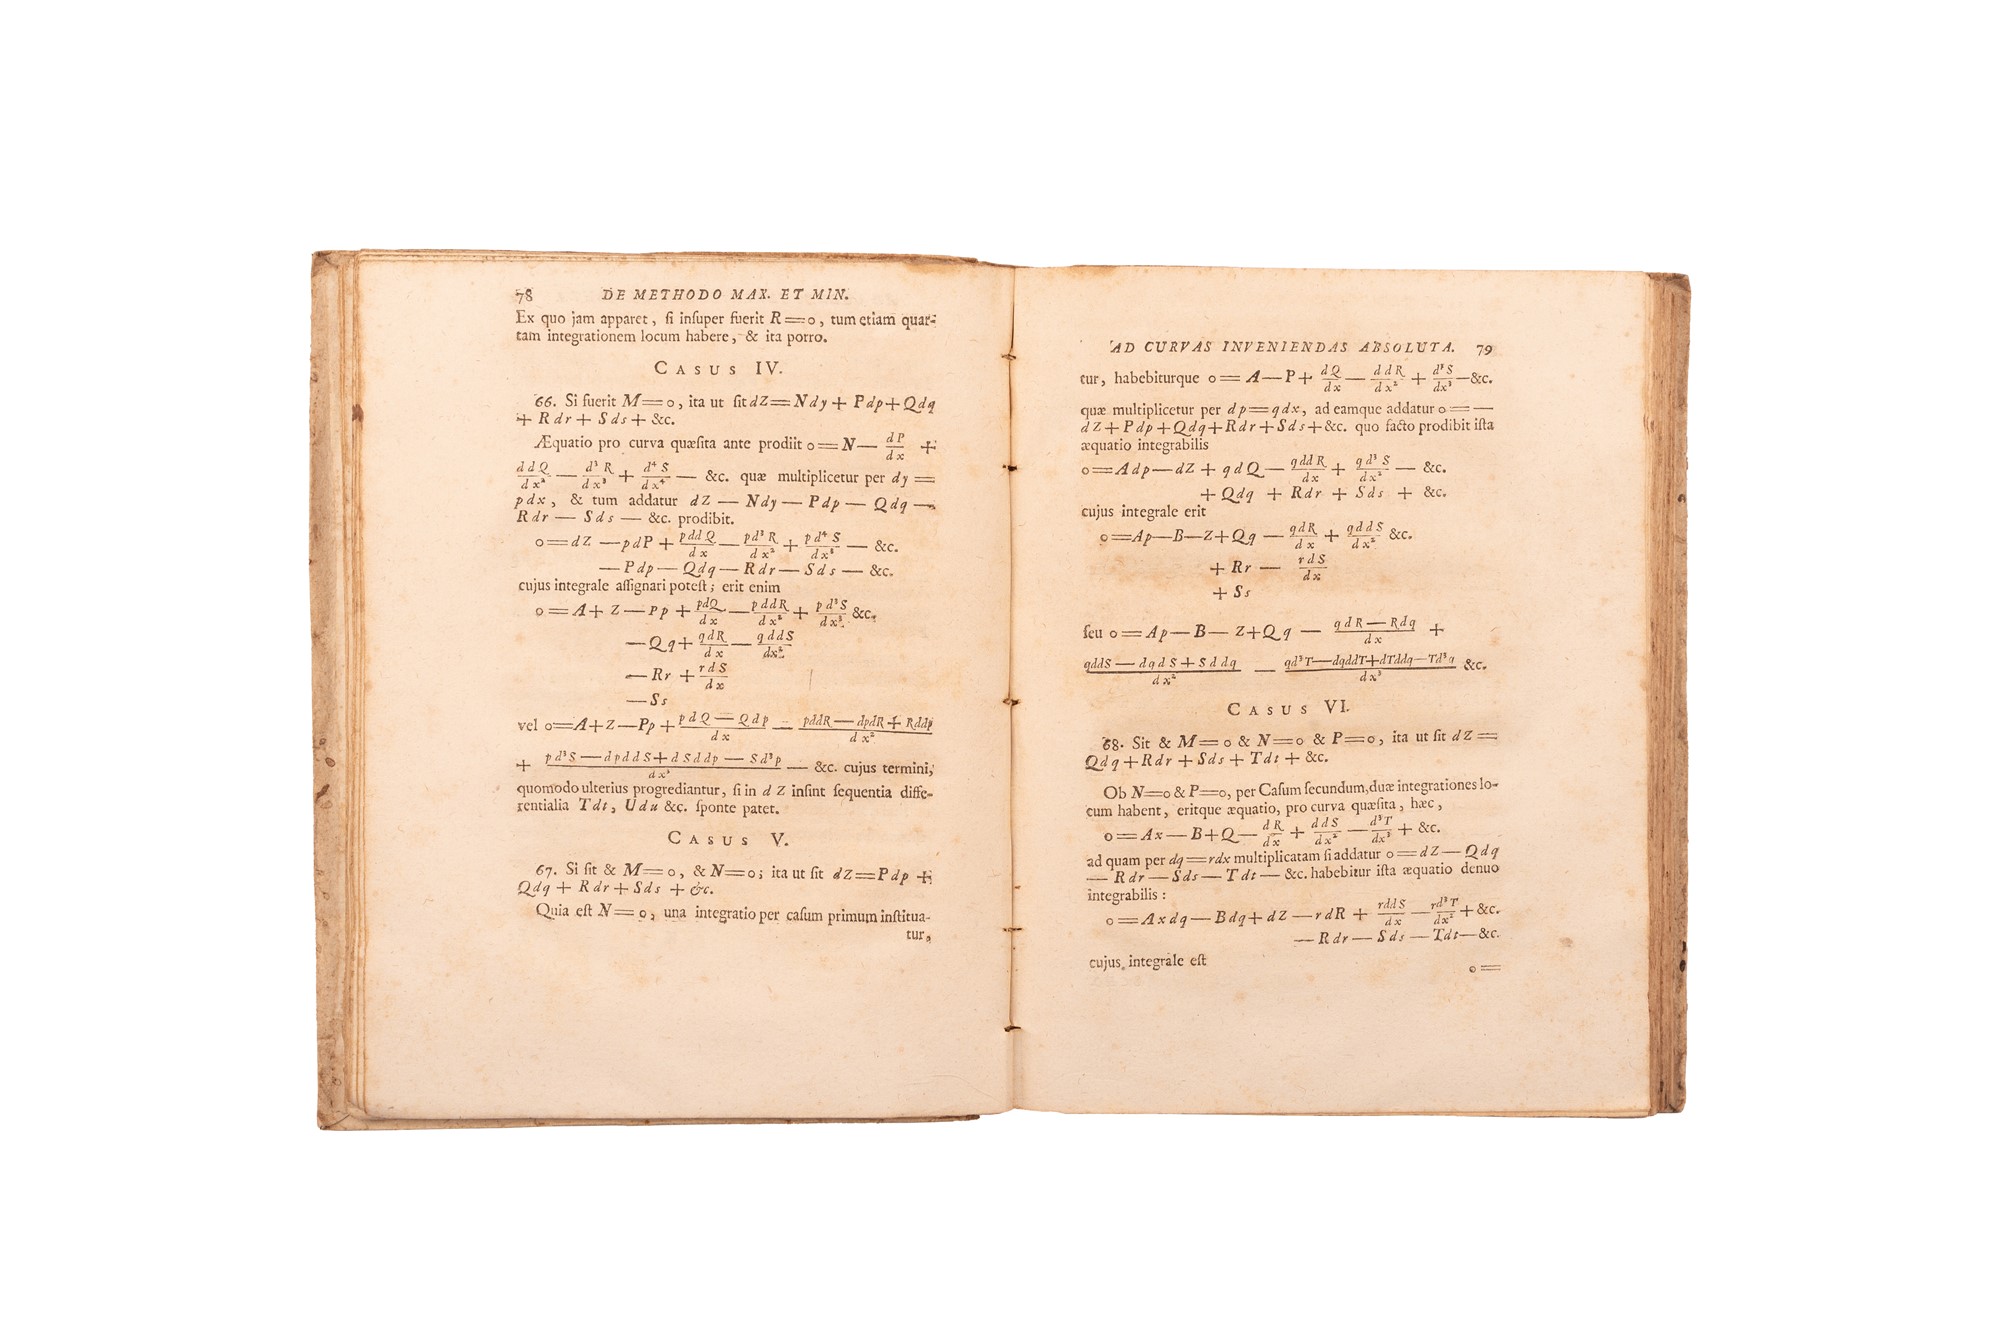 78 DE METHODO MAX. ET MIN.
Ex quo jam apparet, ſi inſuper fuerit R=0, tum etiam quar-
tam integrationem locum habere, & ita porro.
CASUS IV.
66. Si fuerit M=0, ita ut ſit dZ=Ndy + Pdp+Qdq
+ Rdr + Sds + &c.
Æquatio pro curva quæſita ante prodiit 0=N— dP/dx +
ddQ/dx² — d³R/dx³ + d⁴S/dx⁴ — &c. quæ multiplicetur per dy =
pdx, & tum addatur dZ — Ndy — Pdp — Qdq —
Rdr — Sds — &c. prodibit.
0=dZ —pdP + pddQ/dx — pd³R/dx² + pd⁴S/dx³ — &c.
—Pdp— Qdq— Rdr— Sds — &c.
cujus integrale aſſignari poteſt; erit enim
0=A+ Z—Pp + pdQ/dx — pddR/dx² + pd³S/dx³ &c.
—Qq+ qdR/dx — qddS/dx²
—Rr + rdS/dx
—Ss
vel 0=A+Z—Pp + pdQ—Qdp/dx — pddR—dpdR+Rddp/dx²
+ pd³S—dpddS+dSddp—Sd³p/dx³ — &c. cujus termini,
quomodo ulterius progrediantur, ſi in dZ inſint ſequentia diffe-
rentialia Tdt, Udu &c. ſponte patet.
CASUS V.
67. Si ſit & M=0, & N=0; ita ut ſit dZ=Pdp +
Qdq + Rdr + Sds + &c.
Quia eſt N=0, una integratio per caſum primum inſtitua-
tur,
AD CURVAS INVENIENDAS ABSOLUTA. 79
tur, habebiturque 0= A—P+ dQ/dx — ddR/dx² + d³S/dx³ —&c.
quæ multiplicetur per dp=qdx, ad eamque addatur 0=—
dZ+Pdp+Qdq+Rdr+Sds+&c. quo facto prodibit iſta
æquatio integrabilis
0=Adp—dZ + qdQ— qddR/dx + qd³S/dx² — &c.
+ Qdq + Rdr + Sds + &c.
cujus integrale erit
0=Ap—B—Z+Qq — qdR/dx + qddS/dx² &c.
+ Rr — rdS/dx
+ Ss
ſeu 0=Ap—B—Z+Qq — qdR—Rdq/dx +
qddS—dqdS+Sddq/dx² — qd³T—dqddT+dTddq—Td³q/dx³ &c.
CASUS VI.
68. Sit & M=0 & N=0 & P=0, ita ut ſit dZ=
Qdq+Rdr + Sds + Tdt + &c.
Ob N=0 & P=0, per Caſum ſecundum, duæ integrationes lo-
cum habent, eritque æquatio, pro curva quæſita, hæc,
0=Ax—B+Q— dR/dx + ddS/dx² — d³T/dx³ + &c.
ad quam per dq=rdx multiplicatam ſi addatur 0=dZ—Qdq
—Rdr—Sds—Tdt— &c. habebitur iſta æquatio denuo
integrabilis:
0=Axdq—Bdq+dZ—rdR + rddS/dx — rd³T/dx² +&c.
—Rdr—Sds—Tdt—&c.
cujus integrale eſt
0=